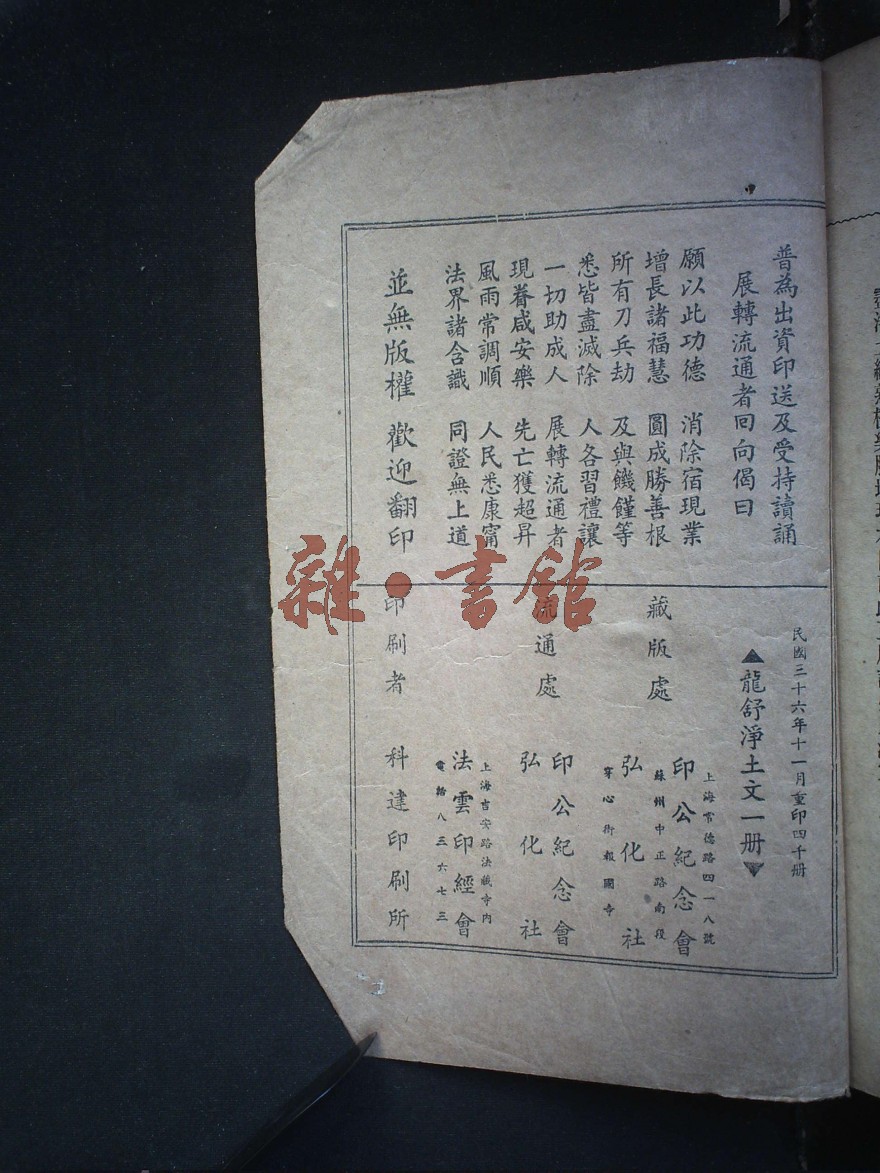 普為出資印送及受持讀誦
展轉流通者回向偈曰
願以此功德 消除宿現業
增長諸福慧 圓成勝善根
所有刀兵劫 及與饑饉等
悉皆盡滅除 人各習禮讓
一切助成人 展轉流通者
現眷咸安樂 先亡獲超昇
風雨常調順 人民悉康甯
法界諸含識 同證無上道
並無版權 歡迎翻印
民國三十六年十一月重印四千册
▲龍舒淨土文一册▼
藏版處
上海常德路四一八號
印公紀念會
蘇州中正路南段
弘化社
穿心街報國寺
流通處
印公紀念會
弘化社
上海吉安路法藏寺內
法雲印經會
電話八三六七三
印刷者
科達印刷所
雜·書館